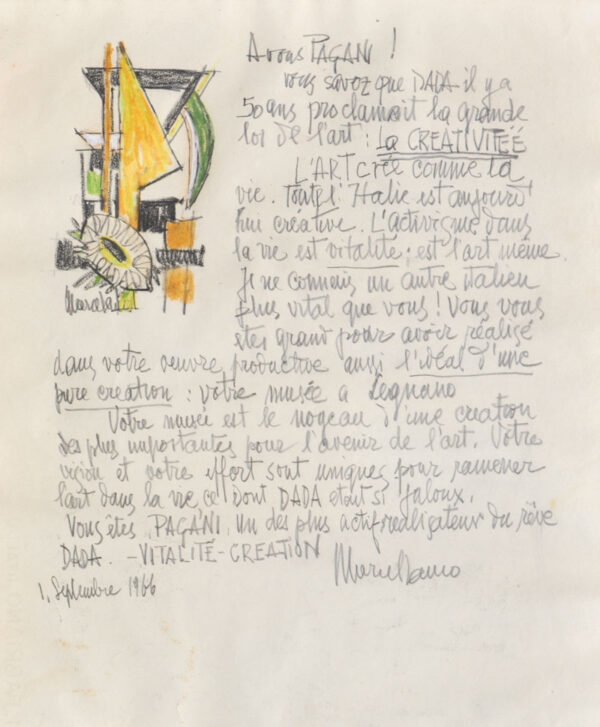 A vous PAGANI !
vous savez que DADA il y a
50 ans proclamait la grande
loi de l'art : La CREATIVITEÉ
L'ART crée comme la
vie. Toute l'Italie est aujourd'
hui créative. L'activisme dans
la vie est vitalité ; est l'art même.
Je ne connais un autre italien
plus vital que vous ! Vous vous
etes grand pour avoir réalisé
dans votre oeuvre productive aussi l'idéal d'une
pure creation : votre musée a Legnano
Votre musée est le noyeau d'une creation
des plus importantes pour l'avenir de l'art. Votre
vision et votre effort sont uniques pour ramener
l'art dans la vie ce dont DADA etait si jaloux.
Vous êtes, PAGANI, un des plus actif realisateur du rêve
DADA. – VITALITÉ - CREATION
Marcel Janco
1, Septembre 1966